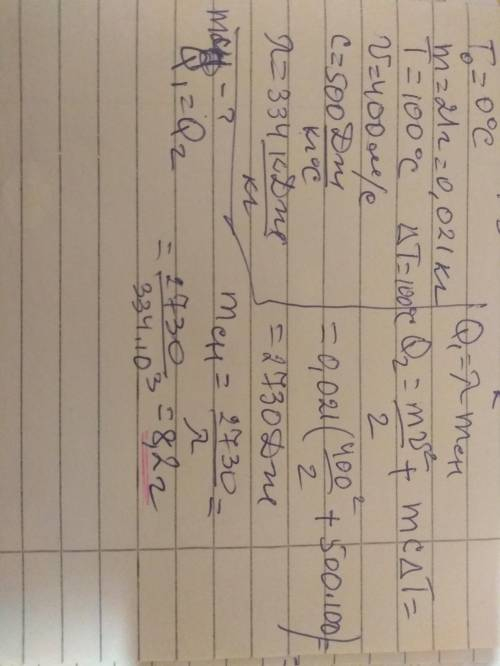 T₀ = 0°C
m = 21г = 0,021 кг
T = 100°C ΔT = 100°C
v = 400 м/с
c = 500 Дж/кг°С
λ = 334 кДж/кг
mсн - ?
Q₁ = Q₂
Q₁ = λ mсн
Q₂ = mv²/2 + mcΔT =
= 0,021 (400²/2 + 500·100) =
= 2730 Дж
mсн = 2730/λ =
= 2730/334·10³ = 8,2 г